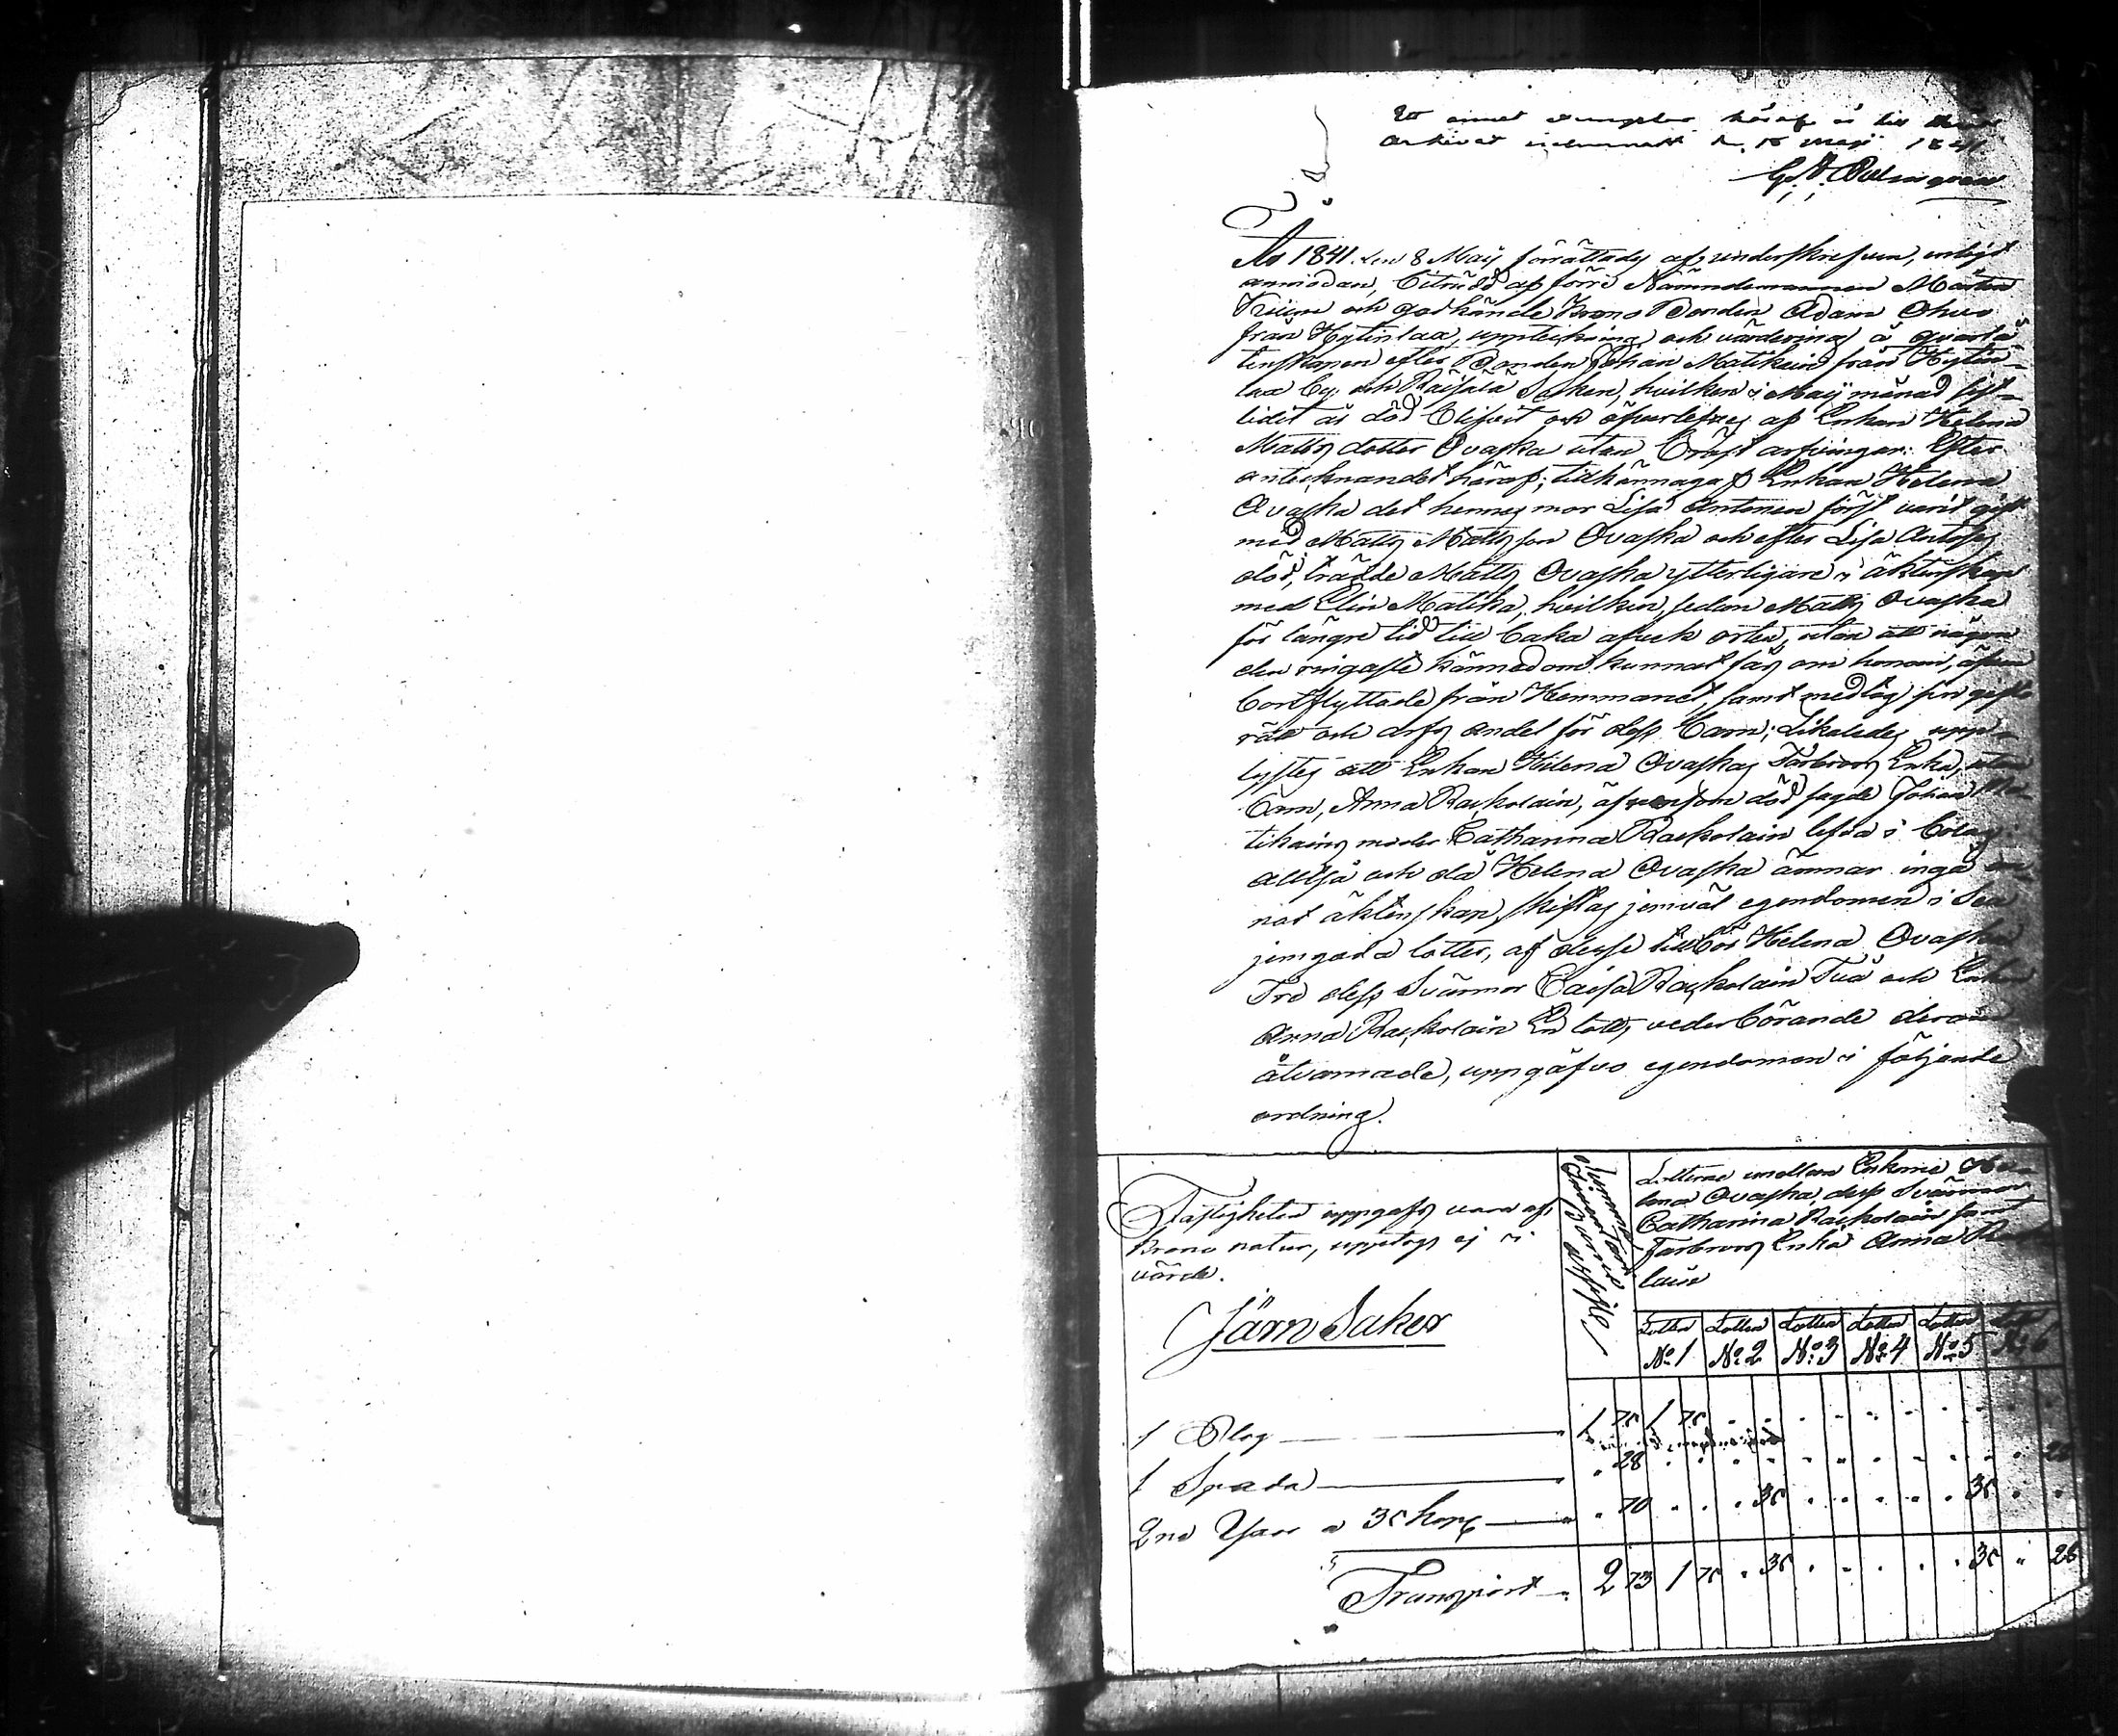 Ett annat exemplar häraf är till
Arkivet inlemnadt d. 15 Maji 1841
G. A. Palmgren
År 1841 den 8 Maij förrättades af underskrefven, enligt
anmodan, biträdd af förre Nämndemannen Mårten
och godkände Krono Bonden Adam
från Hytinlax, uppteckning och värdering å qvarlå-
tenskapen efter Bonden Johan Matikain från Hytin-
lax By och Räisälä Soken, hvilken i Maij månad sist-
lidit år död blifvit och öfverlefves af Enkan Helena
Matts dotter Ovaska utan Bröst arfvingar: Efter
antecknandet häraf; tillkännagaf Enkan Helena
Ovaska det hennes mor Lisa Antonen först varit gift
med Matts Mattsson Ovaska och efter Lisa Antoses
död, trädde Matts Ovaska ytterligare i äktenskap
med Elin Matika, hvilken, sedan Matts Ovaska
för längre tid till baka afvek orten, utan att någon
den ringaste kännedom kunnat fås om honom, äfven
bortflyttade från Hemmanet, samt medtog sin gifto
rätt och arfs andel för dess barn; Likaledes upp-
lystes att Enkan Helena Ovaskas Farbrors Enka, utan
barn, Anna Raskolain, äfvensom död sagde Johan Ma-
tikains moder Catharina Raskolain lefva i bolag:
alltså och då Helena Ovaska ämnar ingå an-
nat äktenskap, skiftas jemväl egendomen i Sex
jemgoda lotter, af desse tillhör Helena Ovaska
Tre dess Svärmor Caisa Raskolain Två och Enkan
Anna Raskolain En lott, vederbörande derom
åtvarnade, uppgåfvo egendomen i följande
ordning.
Fastigheten uppgafs vara af
Krono natur, upptogs ej i
värde.
Järn Saker
Summa
Inventarii
värde
Lotterne emellan Enkorne He-
lena Ovaska, dess Svärmor
Catharina Raskolain samt
Farbrors Enka Anna
lain
Lotten Nº 1 Lotten Nº 2 Lotten Nº 3 Lotten Nº 4 Lotten Nº 5 Lott Nº 6
1 Plog 1 75 1 75
1 Spada 28 28
2ne Yxor a 35 kop 70 35 35
Transport 2 73 1 75 35 35 28